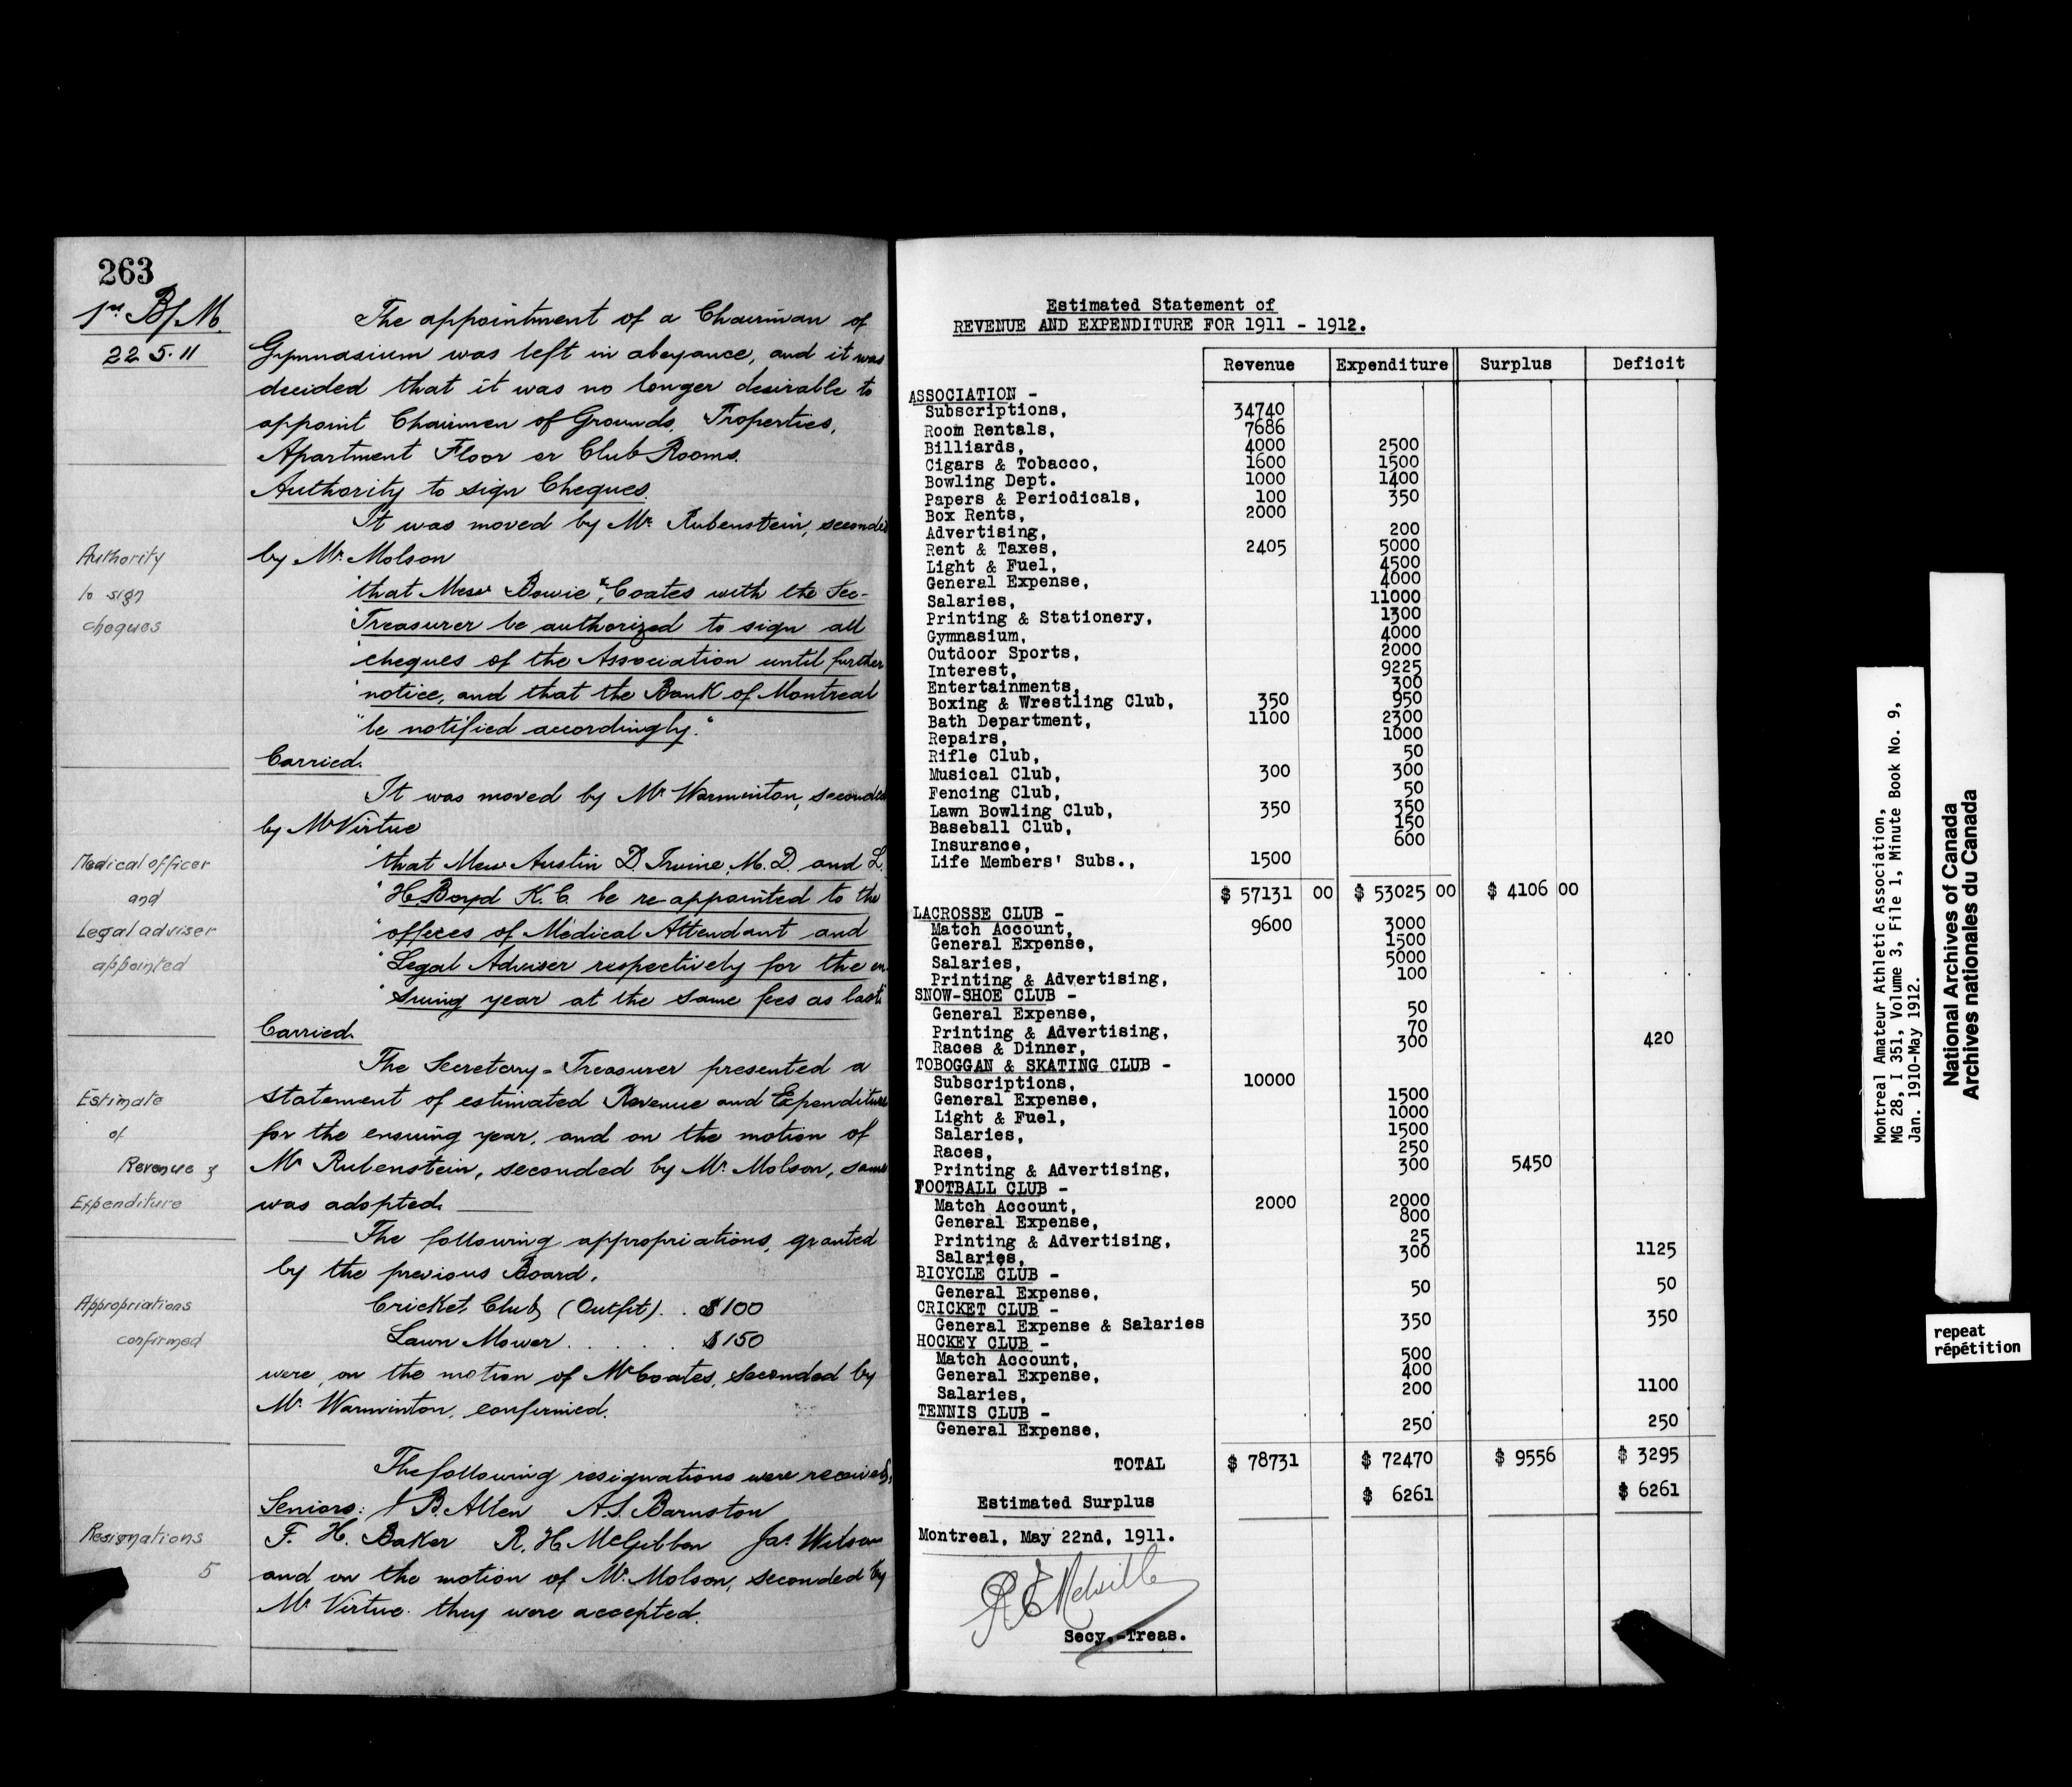 263
1st B/M.
22 5.11
The appointment of a Chairman of
Gymnasium was left in abeyance, and it was
decided that it was no longer desirable to
appoint Chairmen of Grounds, Properties,
Apartment Floor or Club Rooms.
Authority to sign Cheques.
It was moved by Mr. Rubenstein, seconded
by Mr. Molson
Authority
to sign
cheques
"that Messrs Bowie & Coates with the Sec-
"Treasurer be authorized to sign all
"cheques of the Association until further
"notice, and that the Bank of Montreal
"be notified accordingly."
Carried.
It was moved by Mr Warminton, seconded
by Mr Virtue
Medical officer
and
Legal adviser
appointed
"that Messrs Austin D. Irvine, M.D. and L.
"H. Boyd K.C. be re-appointed to the
"offices of Medical Attendant and
"Legal Adviser respectively for the en-
"suing year at the same fees as last"
Carried.
Estimate
of
Revenue &
Expenditure
The Secretary-Treasurer presented a
statement of estimated Revenue and Expenditure
for the ensuing year, and on the motion of
Mr Rubenstein, seconded by Mr. Molson, same
was adopted.
The following appropriations, granted
by the previous Board,
Appropriations
confirmed
Cricket Club (Outfit) . . $100
Lawn Mower . . . . . . $150
were, on the motion of Mr Coates, seconded by
Mr. Warminton, confirmed.
The following resignations were received,
Seniors: J B. Allen A.S. Barnston
Resignations
5
F. H. Baker R. H McGibbon Jas. Wilson
and on the motion of Mr. Molson, seconded by
Mr Virtue. they were accepted.
Estimated Statement of
REVENUE AND EXPENDITURE FOR 1911 - 1912.
Revenue Expenditure Surplus Deficit
ASSOCIATION -
Subscriptions, 34740
Room Rentals, 7686
Billiards, 4000 2500
Cigars & Tobacco, 1600 1500
Bowling Dept. 1000 1400
Papers & Periodicals, 100 350
Box Rents, 2000
Advertising, 200
Rent & Taxes, 2405 5000
Light & Fuel, 4500
General Expense, 4000
Salaries, 11000
Printing & Stationery, 1300
Gymnasium, 4000
Outdoor Sports, 2000
Interest, 9225
Entertainments, 300
Boxing & Wrestling Club, 350 950
Bath Department, 1100 2300
Repairs, 1000
Rifle Club, 50
Musical Club, 300 300
Fencing Club, 50
Lawn Bowling Club, 350 350
Baseball Club, 150
Insurance, 600
Life Members' Subs., 1500
$ 57131 00 $ 53025 00 $ 4106 00
LACROSSE CLUB -
Match Account, 9600 3000
General Expense, 1500
Salaries, 5000
Printing & Advertising, 100
SNOW-SHOE CLUB -
General Expense, 50
Printing & Advertising, 70
Races & Dinner, 300 420
TOBOGGAN & SKATING CLUB -
Subscriptions, 10000
General Expense, 1500
Light & Fuel, 1000
Salaries, 1500
Races, 250
Printing & Advertising, 300 5450
FOOTBALL CLUB -
Match Account, 2000 2000
General Expense, 800
Printing & Advertising, 25
Salaries, 300 1125
BICYCLE CLUB -
General Expense, 50 50
CRICKET CLUB -
General Expense & Salaries 350 350
HOCKEY CLUB -
Match Account, 500
General Expense, 400
Salaries, 200 1100
TENNIS CLUB -
General Expense, 250 250
TOTAL $ 78731 $ 72470 $ 9556 $ 3295
Estimated Surplus $ 6261 $ 6261
Montreal, May 22nd, 1911.
R E Melville
Secy.-Treas.
Montreal Amateur Athletic Association,
MG 28, I 351, Volume 3, File 1, Minute Book No. 9,
Jan. 1910-May 1912.
National Archives of Canada
Archives nationales du Canada
repeat
répétition